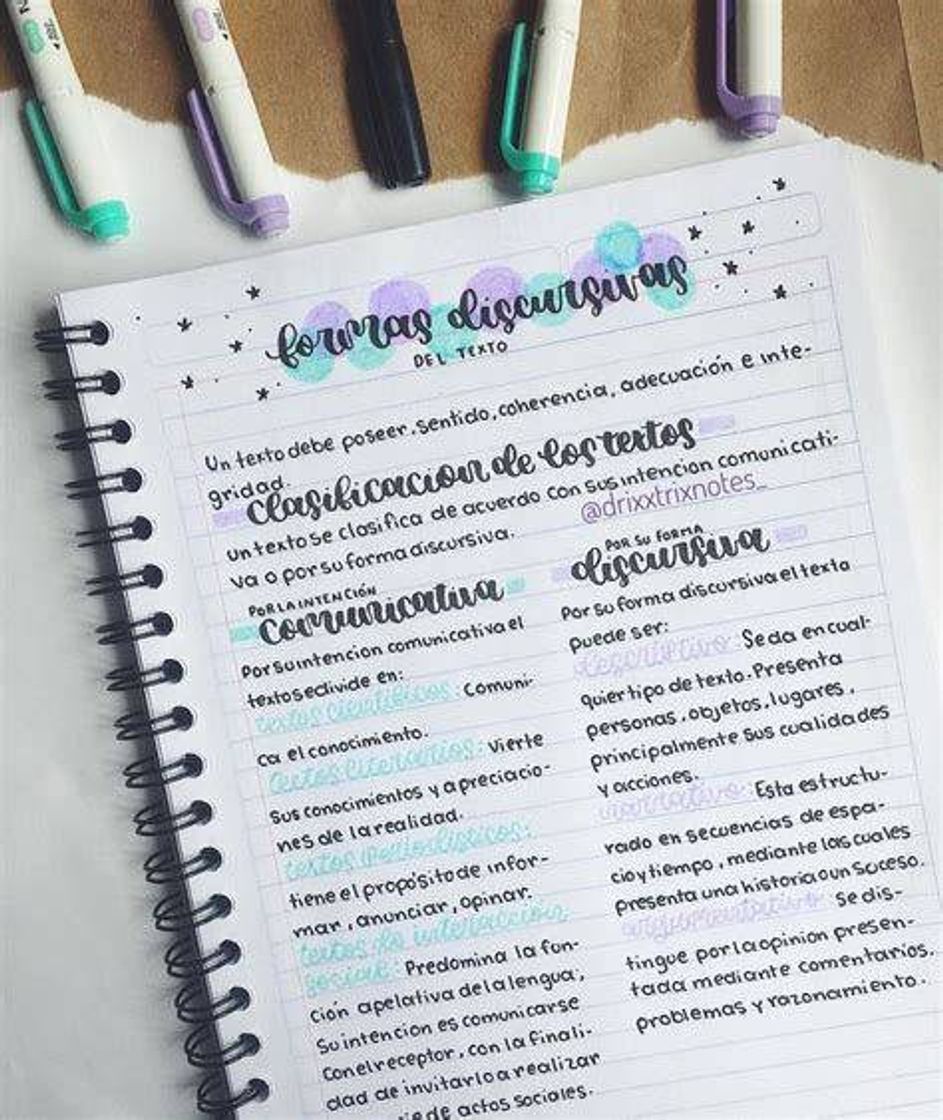 formas discursivas
DEL TEXTO
Un texto debe poseer, sentido, coherencia, adecuación e inte-
gridad.
clasificacion de los textos
un texto se clasifica de acuerdo con sus intencion comunicati-
va o por su forma discursiva.
@drixxtrixnotes_
POR LA INTENCIÓN
comunicativa
Por su intencion comunicativa el
texto se divide en:
textos científicos: Comuni-
ca el conocimiento.
textos literarios: Vierte
sus conocimientos y apreciacio-
nes de la realidad.
textos periodísticos:
tiene el propósito de infor-
mar, anunciar, opinar.
textos de interacción
social: Predomina la fun-
ción apelativa de la lengua,
Su intencion es comunicarse
con el receptor, con la finali-
dad de invitarlo a realizar
de actos sociales.
POR SU FORMA
discursiva
Por su forma discursiva el texto
puede ser:
descriptivo: Se da en cual-
quier tipo de texto. Presenta
personas, objetos, lugares,
principalmente sus cualidades
y acciones.
narrativo: Esta estructu-
rado en secuencias de espa-
cio y tiempo, mediante las cuales
presenta una historia o un suceso.
argumentativo: Se dis-
tingue por la opinión presen-
tada mediante comentarios,
problemas y razonamiento.